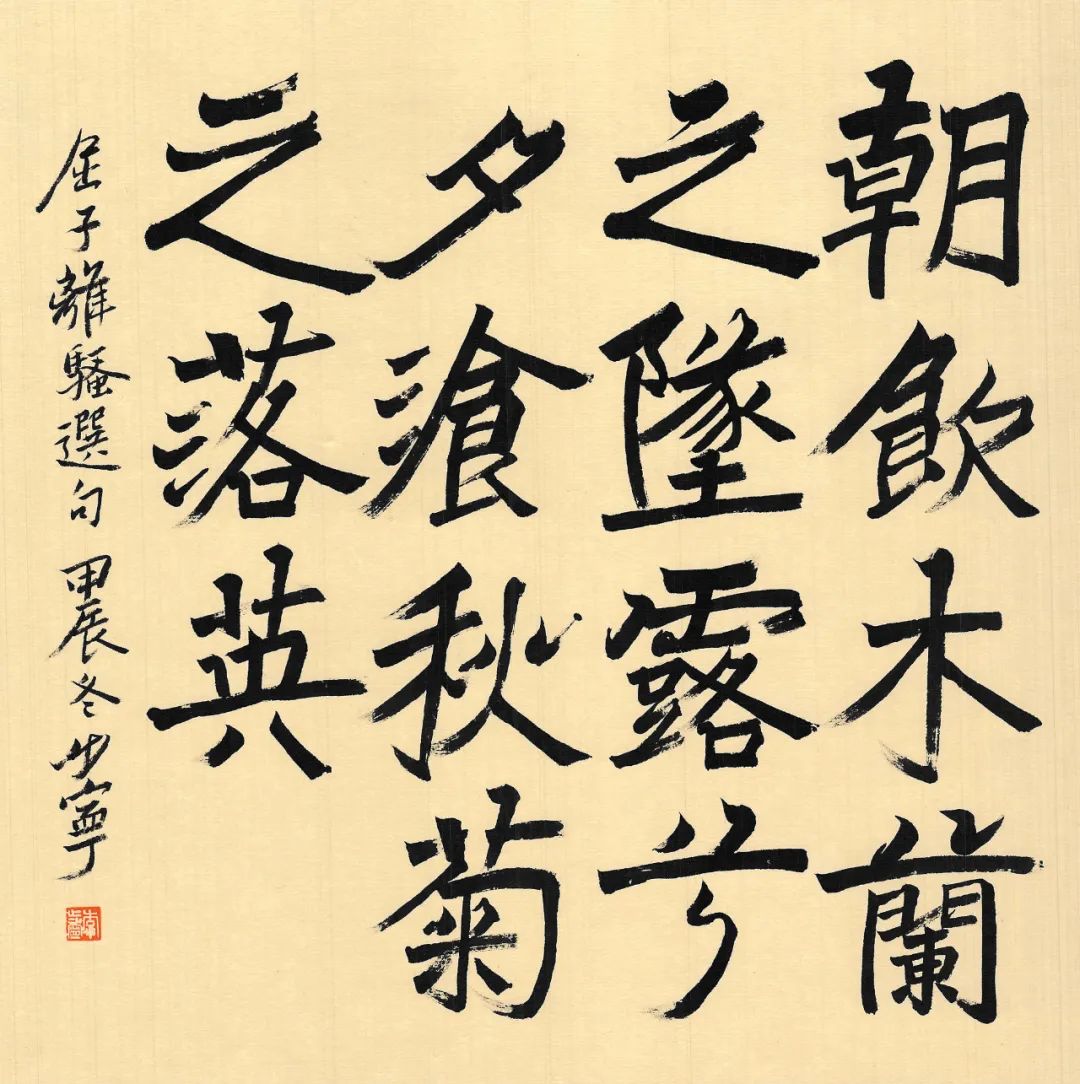 朝飲木蘭
之墜露兮
夕飡秋菊
之落英
屈子離騷選句 甲辰冬 步寧